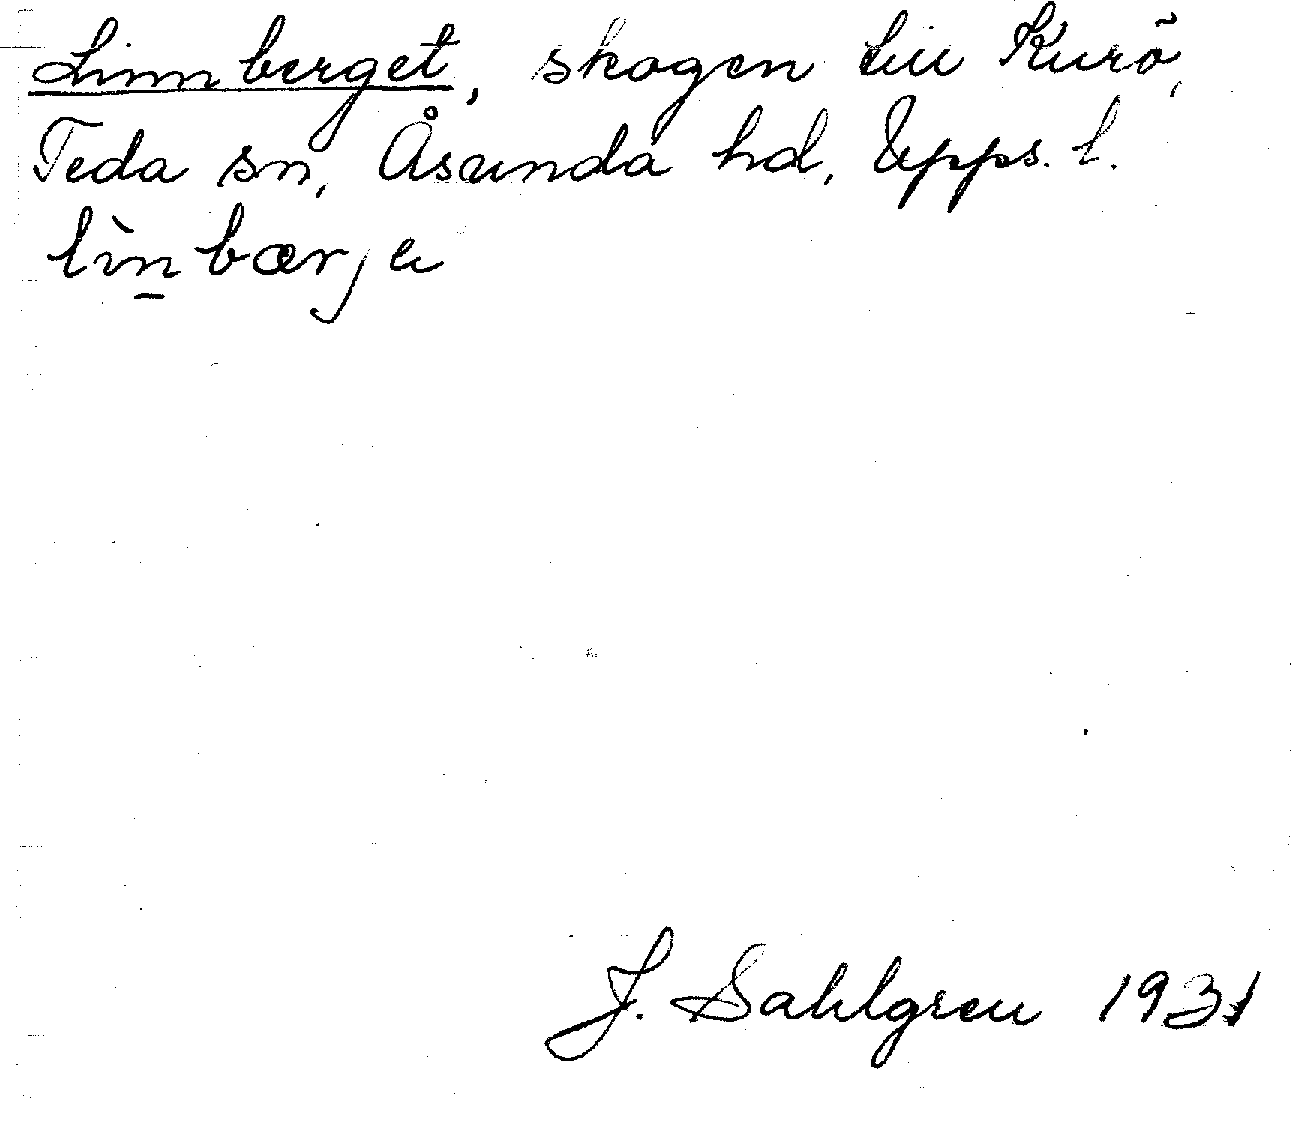 Linnberget, skogen till Kurö,
Teda sn, Åsunda hd, Upps. l.
lìn̲bærje
J. Sahlgren 1931